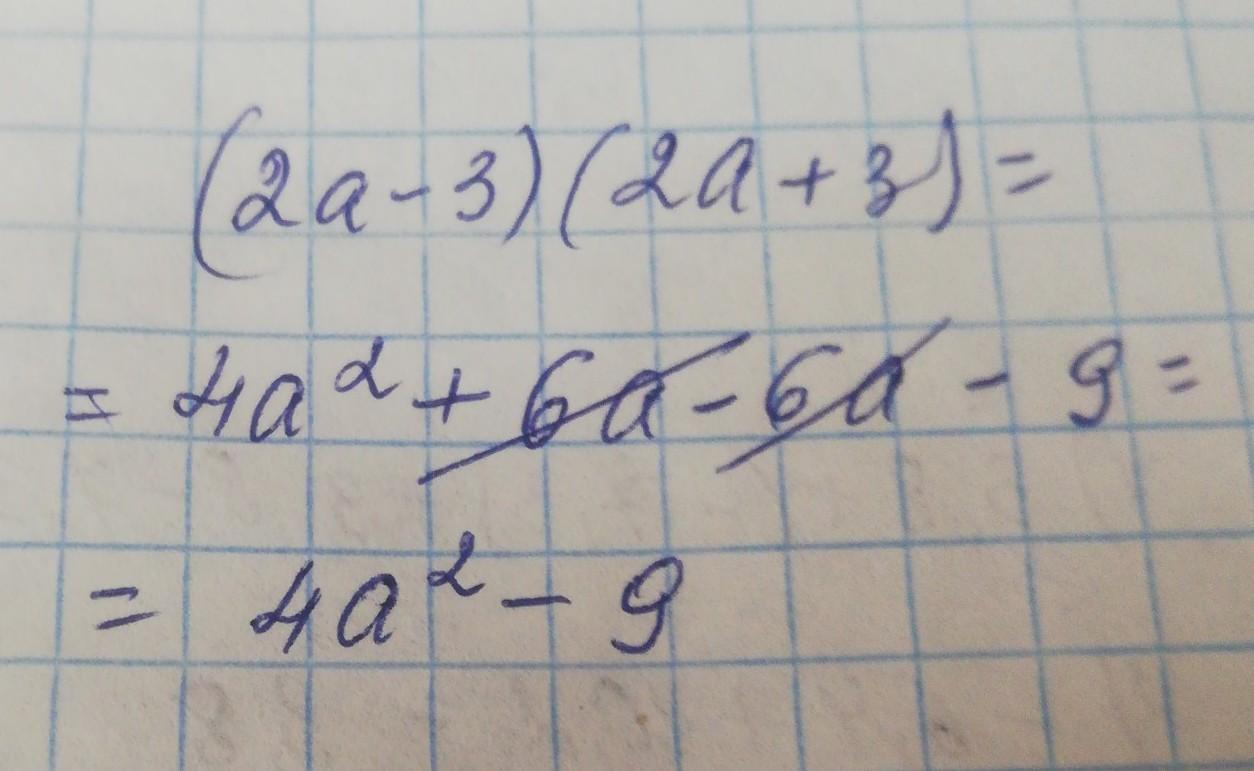 (2a-3)(2a+3)=
= 4a² + 6a - 6a - 9 =
= 4a² - 9